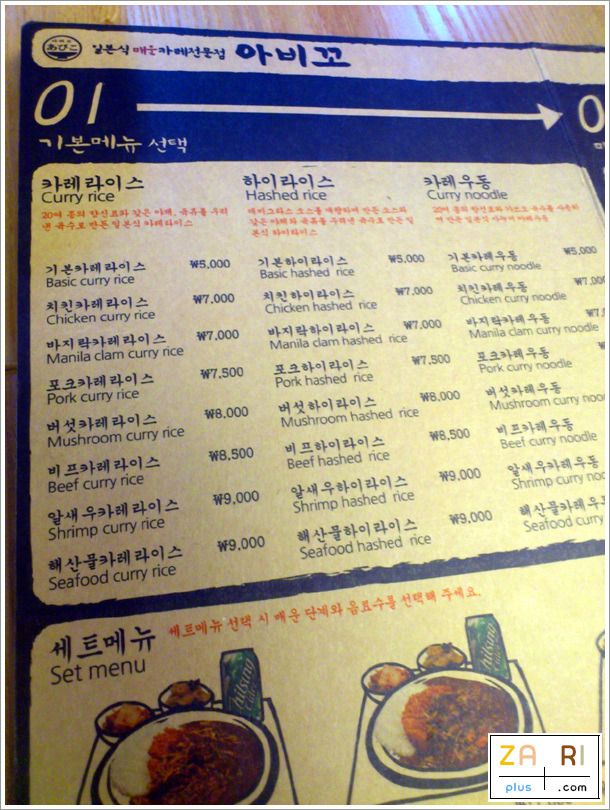 あびこ
일본식 매운카레전문점 아비꼬
01
기본메뉴 선택
카레라이스
Curry rice
20여 종의 향신료와 갖은 야채, 육류를 우려
낸 육수로 만든 일본식 카레라이스
기본카레라이스 ₩5,000
Basic curry rice
치킨카레라이스 ₩7,000
Chicken curry rice
바지락카레라이스 ₩7,000
Manila clam curry rice
포크카레라이스 ₩7,500
Pork curry rice
버섯카레라이스 ₩8,000
Mushroom curry rice
비프카레라이스 ₩8,500
Beef curry rice
알새우카레라이스 ₩9,000
Shrimp curry rice
해산물카레라이스 ₩9,000
Seafood curry rice
하이라이스
Hashed rice
데미그라스 소스를 만든 소스와
갖은 야채와 육류를 우려낸 육수로 만든 일
본식 하이라이스
기본하이라이스 ₩5,000
Basic hashed rice
치킨하이라이스 ₩7,000
Chicken hashed rice
바지락하이라이스 ₩7,000
Manila clam hashed rice
포크하이라이스 ₩7,500
Pork hashed rice
버섯하이라이스 ₩8,000
Mushroom hashed rice
비프하이라이스 ₩8,500
Beef hashed rice
알새우하이라이스 ₩9,000
Shrimp hashed rice
해산물하이라이스 ₩9,000
Seafood hashed rice
카레우동
Curry noodle
20여 종의 향신료와 육수를 사용하
여 만든 일본식 카레우동
기본카레우동 ₩5,000
Basic curry noodle
치킨카레우동 ₩7,0
Chicken curry noodle
바지락카레우동 ₩7,
Manila clam curry noodle
포크카레우동
Pork curry noodle
버섯카레우동
Mushroom curry noo
비프카레우동
Beef curry noodle
알새우카레우동
Shrimp curry noo
해산물카레우
Seafood curry
세트메뉴
Set menu
세트메뉴 선택 시 매운 단계와 음료수를 선택해 주세요.
chilsung
cider
chilsung
ZA RI
plus .com